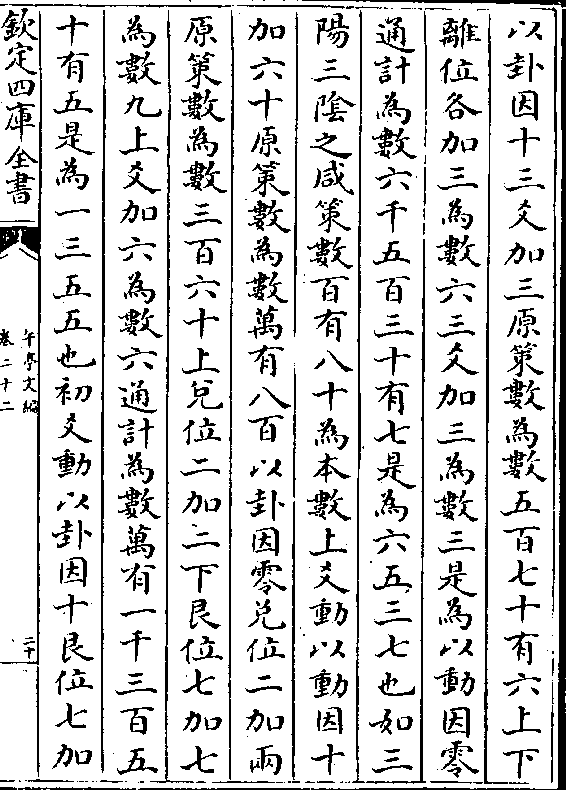 以卦因十三爻加三原策數為數五百七十有六上下
離位各加三為數六三爻加三為數三是為以動因零
通計為數六千五百三十有七是為六五三七也如三
陽三陰之咸策數百有八十為本數上爻動以動因十
加六十原策數為數萬有八百以卦因零兌位二加兩
原策數為數三百六十上兌位二加二下艮位七加七
為數九上爻加六為數六通計為數萬有一千三百五
十有五是為一三五五也初爻動以卦因十艮位七加
欽定四庫全書
卷二十二
二十